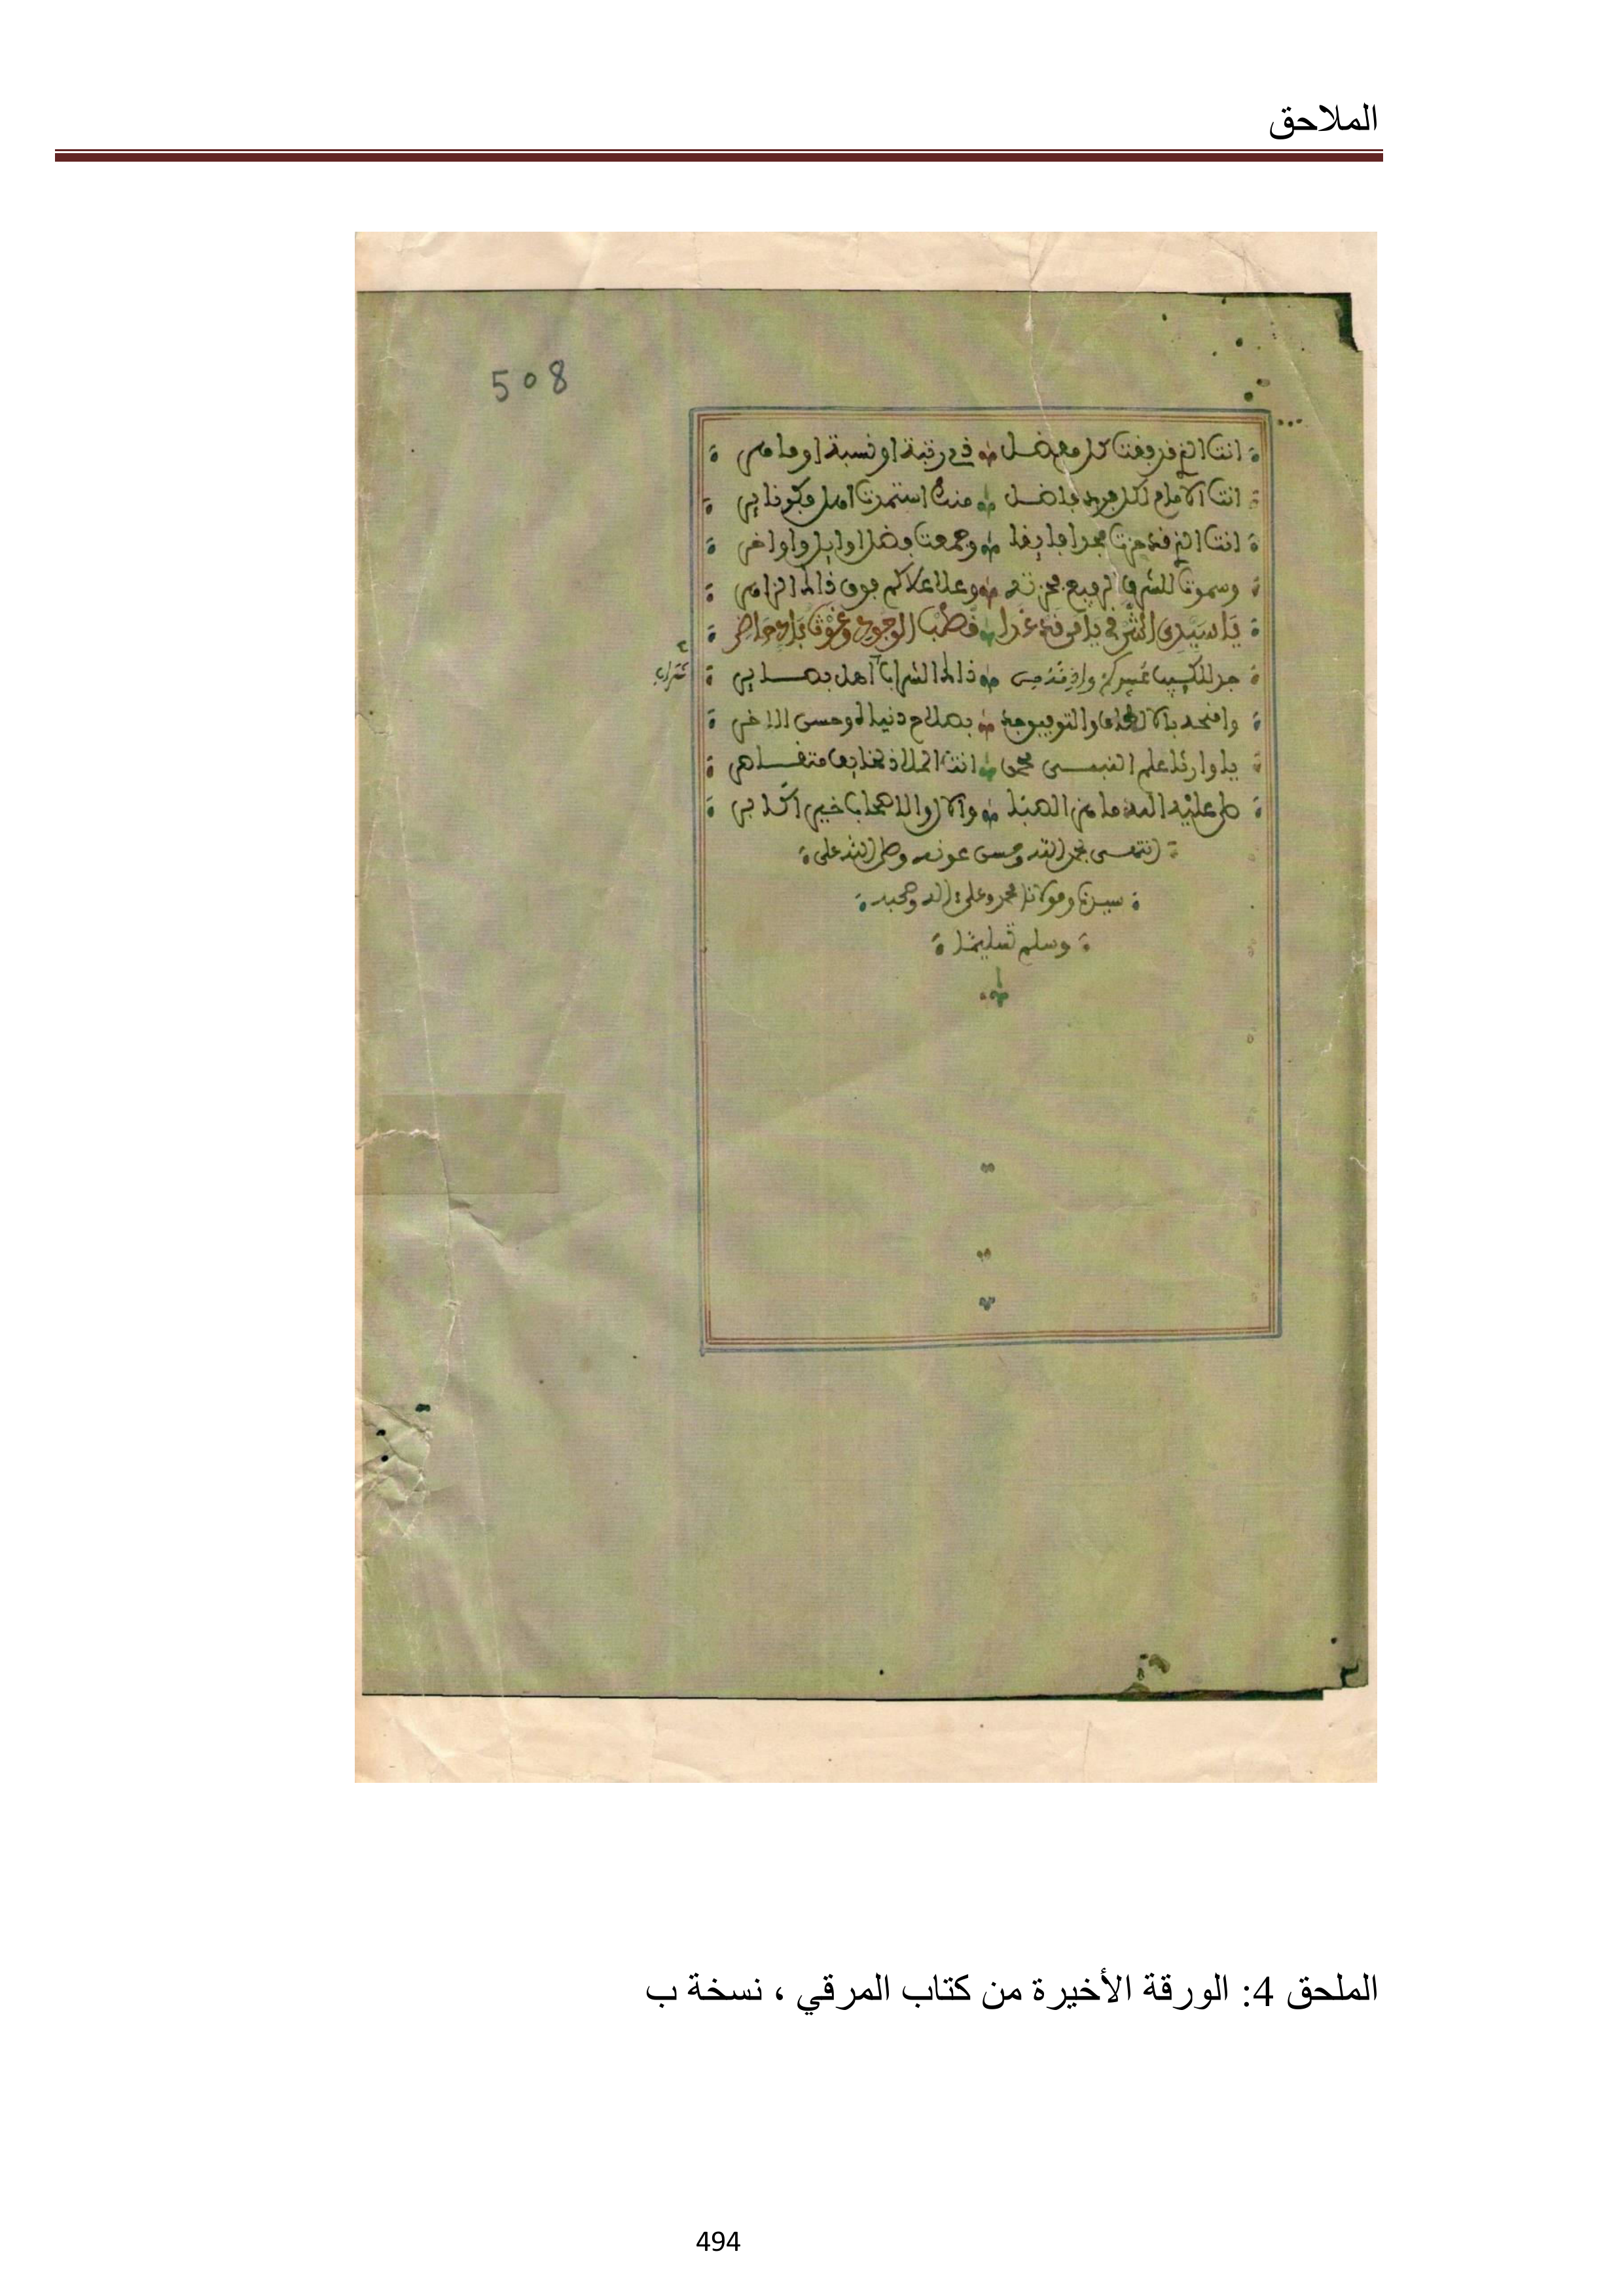 الملاحق
508
انت الذي قد رفعت كل مفضل في رتبة او نسبة او مامر
انت الامام لكل فاضل منك استمرت
انت الذي قد حزت مجدا فايقا وجمعت فضل اوايل واواخر
وسموت للشرف الرفيع وعلا علاكم فوق ذاك
يا سيدي الشرقي يا من قد غدا قطب الوجود وغوث باد حاضر
جد ذاك الشراب
شراب
وامنحه بالالطاف والتوفيق وجد بصلاح دنياه وحسن الاخر
يا وارثا علم النبي محمد انت الملاذ
صلى عليه الله ما والال والاصحاب خير اكابر
انتهى بحمد الله وحسن عونه وصلى الله على
سيدنا ومولانا محمد وعلى ءاله وصحبه
وسلم تسليما
الملحق 4: الورقة الأخيرة من كتاب المرقي ، نسخة ب
494